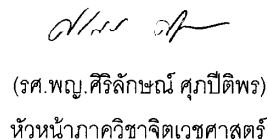 (รศ.พญ.ศิริลักษณ์ ศุภปีติพร)
หัวหน้าภาควิชาจิตเวชศาสตร์